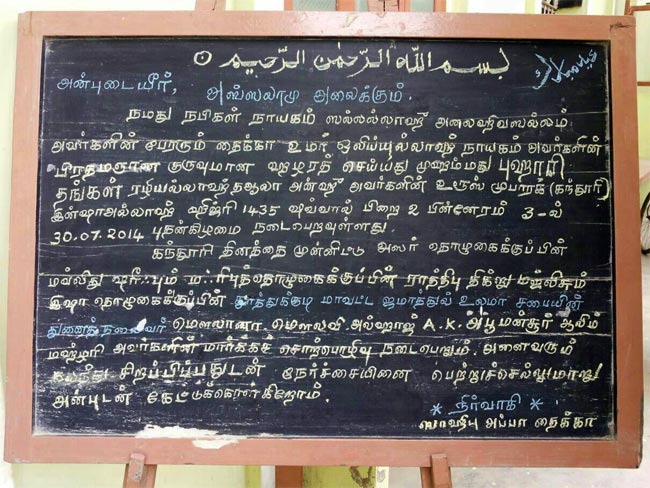 بسم الله الرحمن الرحيم
அன்புடையீர், அஸ்ஸலாமு அலைக்கும்.
நமது நபிகள் நாயகம் ஸல்லல்லாஹு அலைஹிவஸல்லம்
அவர்களின் பேரரும் தைக்கா உமர் ஒலிய்யுல்லாஹ் நாயகம் அவர்களின்
பிரதமரான குருவுமான ஹழரத் செய்யிது முஹம்மது புஹாரி
தங்கள் ரழியல்லாஹு தஆலா அன்ஹு அவர்களின் உரூஸ் முபாரக் (கந்தூரி)
இன்ஷாஅல்லாஹ் ஹிஜ்ரி 1435 ஷவ்வால் பிறை 2 பின்னேரம் 3-ல்
30.07.2014 புதன்கிழமை நடைபெறவுள்ளது.
கந்தூரி தினத்தை முன்னிட்டு அஸர் தொழுகைக்குப்பின்
மவ்லிது ஷரீஃபும் மஃரிபுத்தொழுகைக்குப்பின் ராத்திபு திக்ரு மஜ்லிசும்
இஷா தொழுகைக்குப்பின் தூத்துக்குடி மாவட்ட ஜமாத்துல் உலமா சபையின்
துணைத்தலைவர் மௌலானா. மௌலவி. அல்ஹாஜ் A.K. அபூமன்சூர் ஆலிம்
மஹ்ழரி அவர்களின் மார்க்கச் சொற்பொழிவு நடைபெறும். அனைவரும்
கலந்து சிறப்பிப்பதுடன் நேர்ச்சையினை பெற்றுச்செல்லுமாறு
அன்புடன் கேட்டுக்கொள்கிறோம்.
* நிர்வாகி *
ஸாஹிபு அப்பா தைக்கா